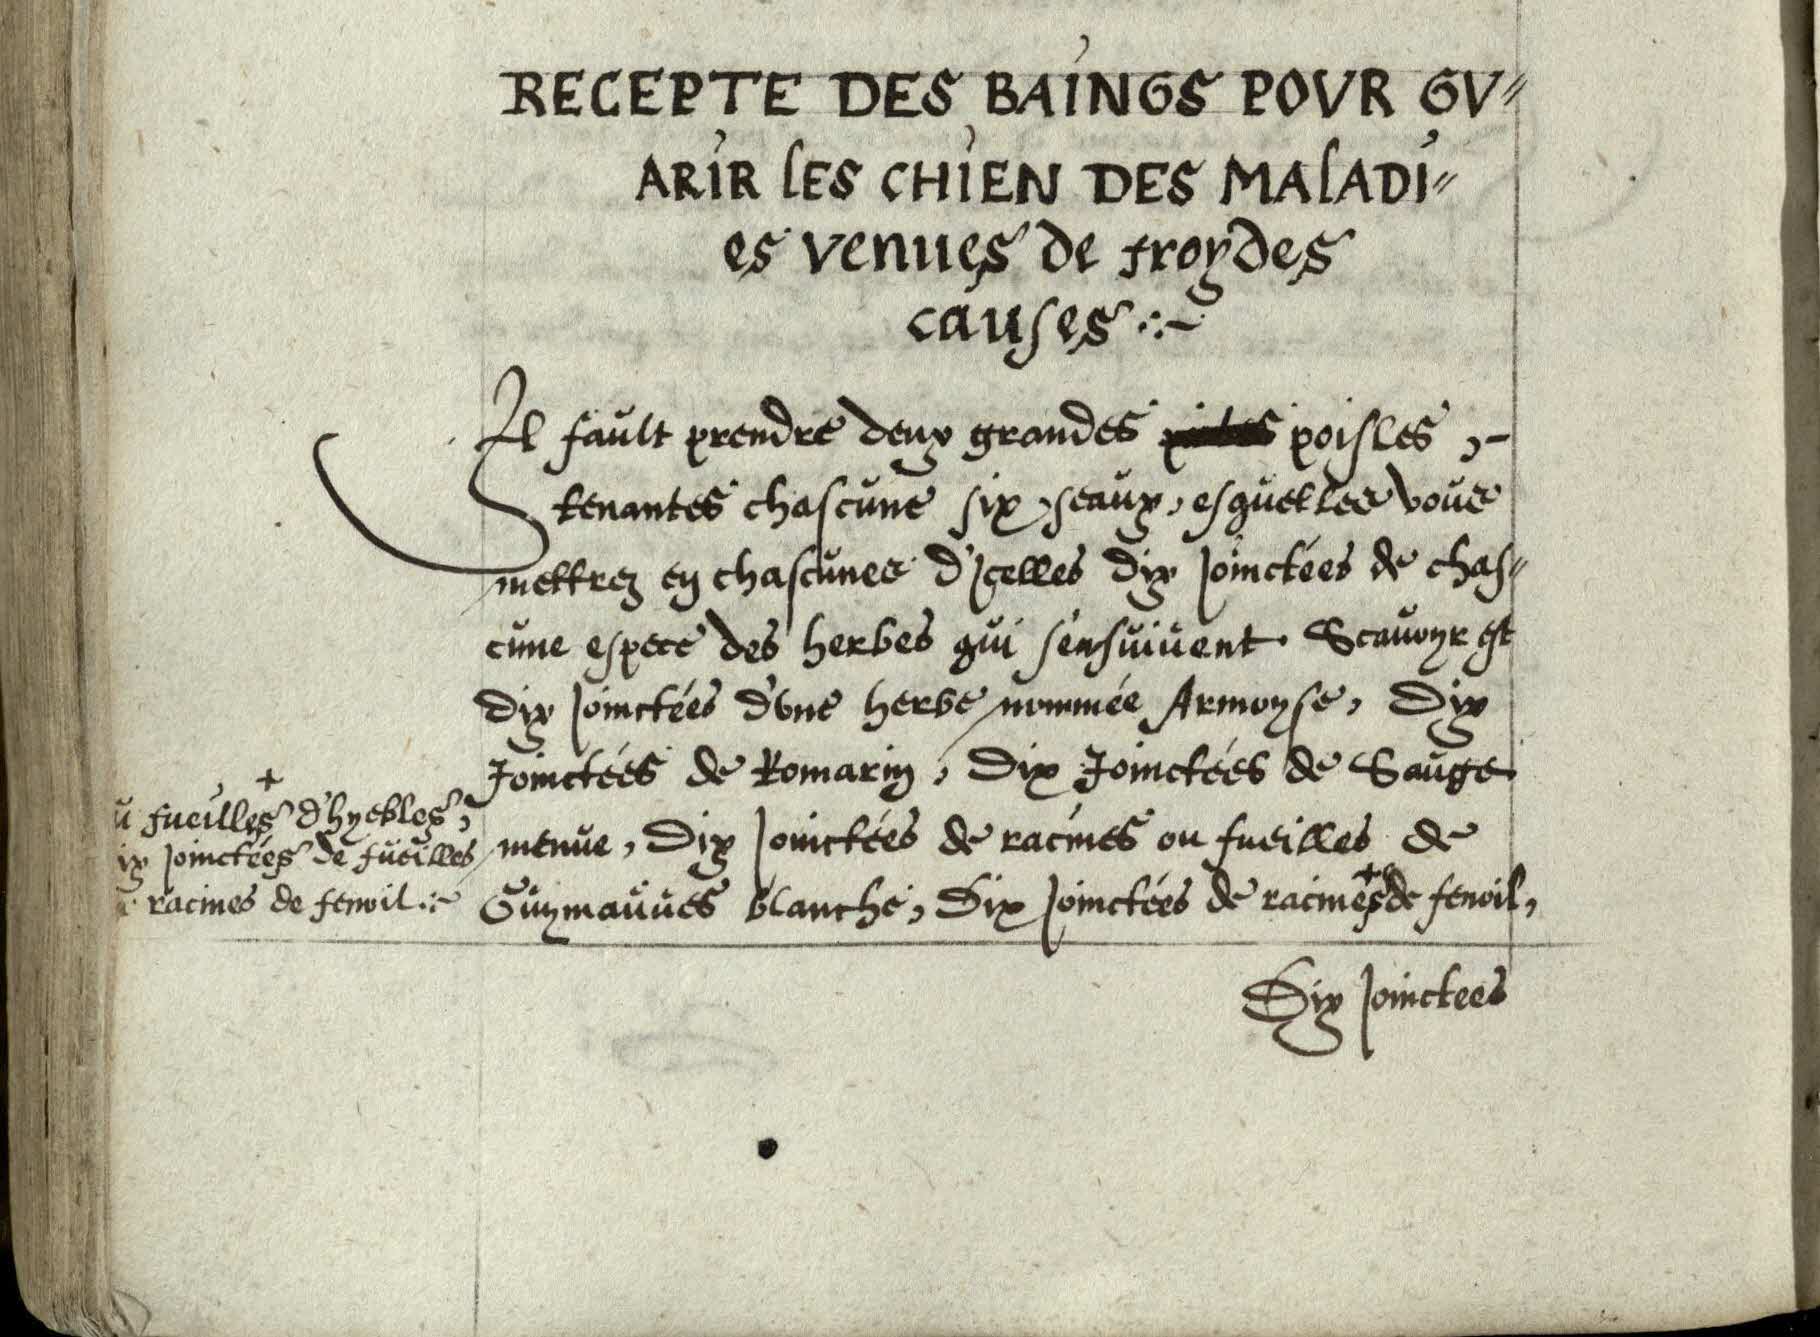 RECEPTE DES BAINGS POVR GV〃
ARIR lES CHIEN DES MAlADI〃
es venues de froydes
causes
Il fault prendre deux grandes poisles,
tenantes chascune six seaux, esquelles vous
mettrez en chascunes d'Jcelles dix Joinctées de chas〃
cune espece des herbes qui s'ensuiuent. Scauoyr est
dix Joinctées d'vne herbe nommée Armoyse, Dix
Joinctées de Romarin, Dix Joinctées de Sauge
menue, Dix Joinctées de racines ou fueilles de
Guymauues blanche, Dix Joinctées de racines + de fenoil,
Dix Joinctees
+
u fueilles d'hyebles,
ix Joinctées de fueilles
racines de fenoil